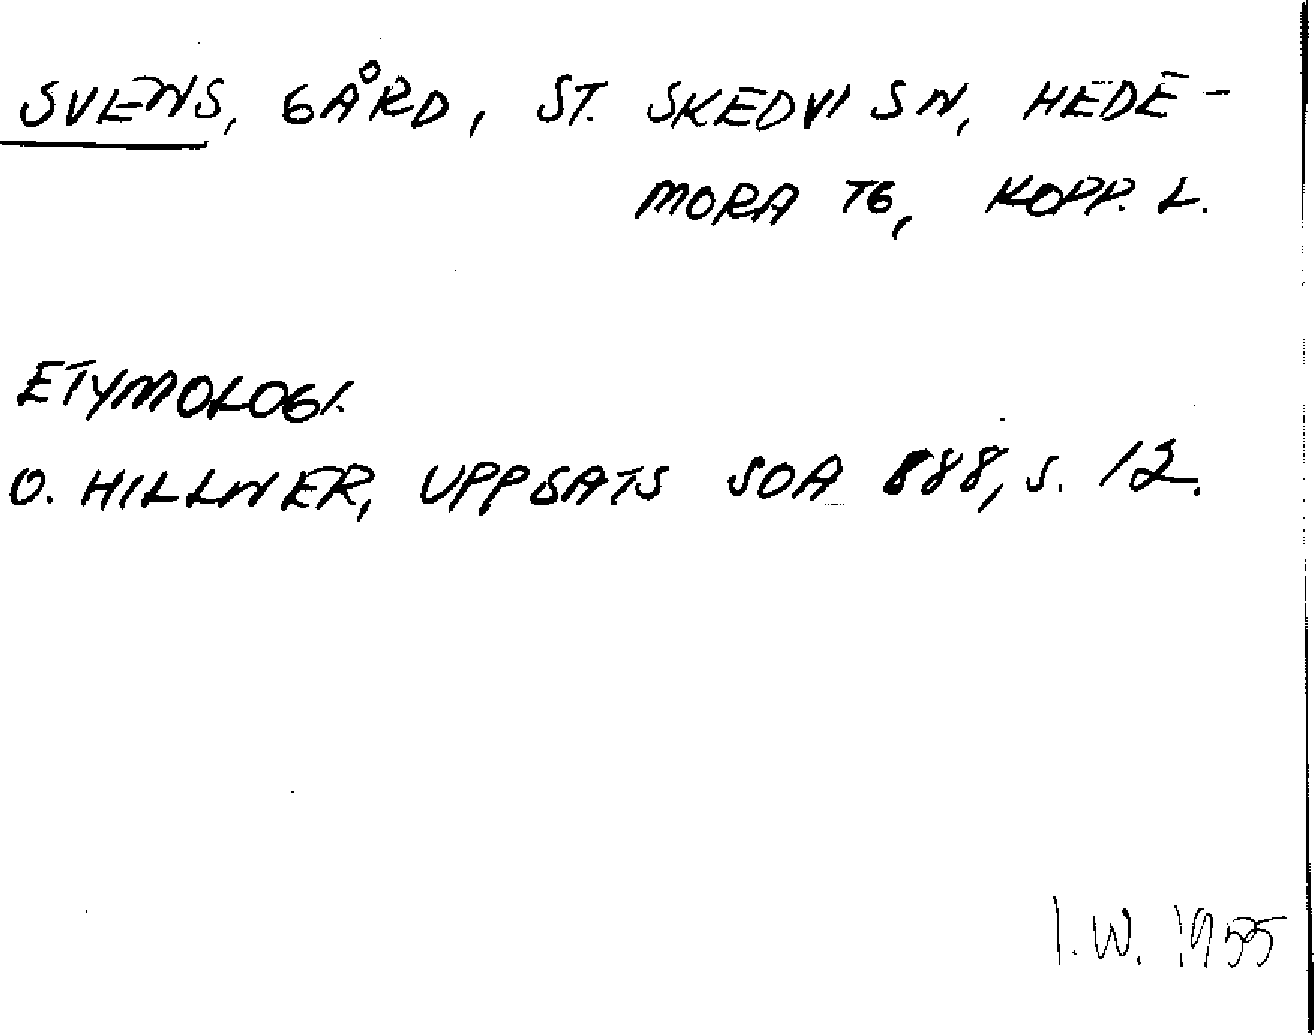 SVENS, GÅRD, ST. SKEDVI SN, HEDE-
MORA TG, KOPP. L.
ETYMOLOGI.
O. HILLNER, UPPSATS SOA 888, S. 12.
I.W. 1955